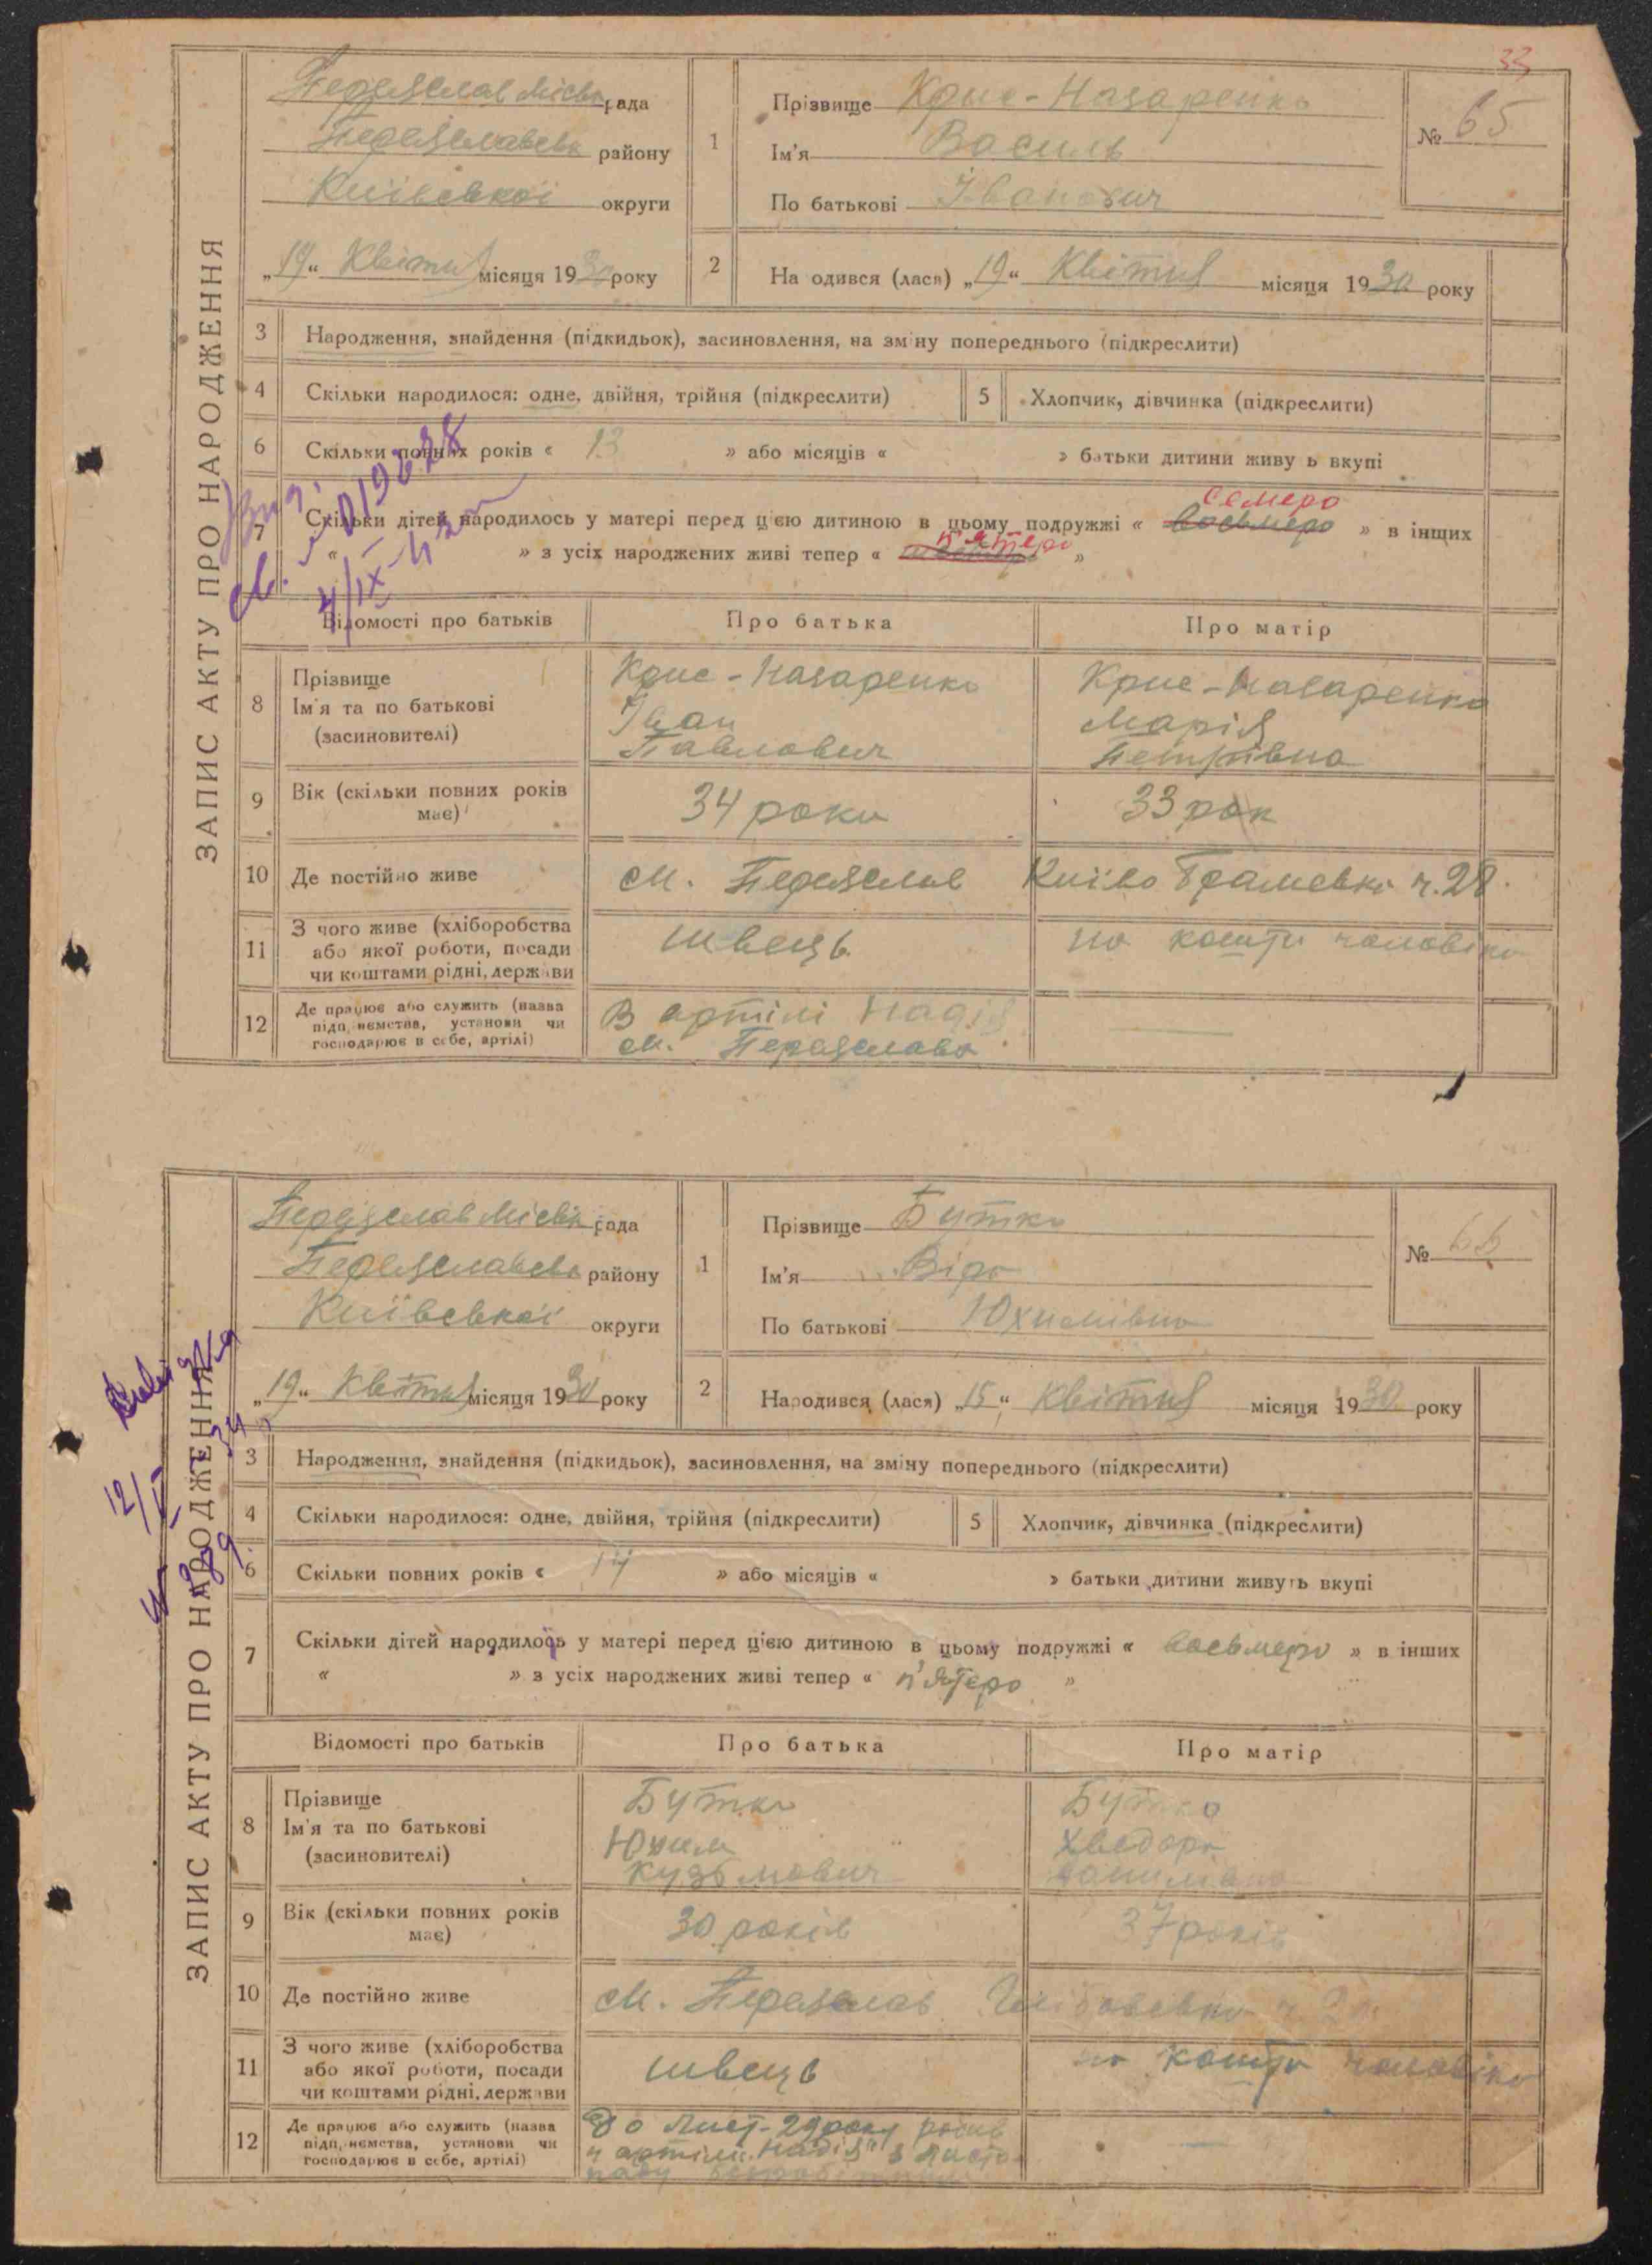 33
ЗАПИС АКТУ ПРО НАРОДЖЕННЯ
Переяслав Міськ рада
Переяславськ району
Київської округи
„19“ Квітня місяця 1930 року
1
Прізвище Крис-Назаренко
Ім'я Василь
По батькові Іванович
№ 65
2
На одився (лася) „19“ Квітня місяця 1930 року
3 Народження, знайдення (підкидьок), засиновлення, на зміну попереднього (підкреслити)
4 Скільки народилося: одне, двійня, трійня (підкреслити) 5 Хлопчик, дівчинка (підкреслити)
6 Скільки повних років « 13 » або місяців « » батьки дитини живу ь вкупі
семеро
7 Скільки дітей народилось у матері перед цією дитиною в цьому подружжі « восьмеро » в інщих
п'ятеро
« » з усіх народжених живі тепер « »
Відомості про батьків Про батька Про матір
8 Прізвище
Ім'я та по батькові
(засиновителі)
Крис-Назаренко
Іван
Павлович
Крис-Назаренко
Марія
Петрівна
9 Вік (скільки повних років має)
34 роки
33 рок
10 Де постійно живе м. Переяслав Києво Брамська ч. 28
11 З чого живе (хліборобства
або якої роботи, посади
чи коштами рідні, держави
швець
на кошти чоловіка
12 Де працює або служить (назва
підприємства, установи чи
господарює в себе, артілі)
В артілі Надія
м. Переяслава
ЗАПИС АКТУ ПРО НАРОДЖЕННЯ
Переяслав Міськ рада
Переяславськ району
Київської округи
„19“ Квітня місяця 1930 року
1
Прізвище Бутко
Ім'я Віра
По батькові Юхимівна
№ 66
2
Народився (лася) „15“ Квітня місяця 1930 року
3 Народження, знайдення (підкидьок), засиновлення, на зміну попереднього (підкреслити)
4 Скільки народилося: одне, двійня, трійня (підкреслити) 5 Хлопчик, дівчинка (підкреслити)
6 Скільки повних років « 14 » або місяців « » батьки дитини живуть вкупі
7 Скільки дітей народилось у матері перед цією дитиною в цьому подружжі « восьмеро » в інших
« » з усіх народжених живі тепер « п'ятеро »
Відомості про батьків Про батька Про матір
8 Прізвище
Ім'я та по батькові
(засиновителі)
Бутко
Юхим
Кузьмович
Бутко
Хведора
9 Вік (скільки повних років має)
30 років
37 років
10 Де постійно живе м. Переяслав
11 З чого живе (хліборобства
або якої роботи, посади
чи коштами рідні, держави
швець
на кошти чоловіка
12 Де працює або служить (назва
підприємства, установи чи
господарює в себе, артілі)
до Лист. 29 року робив
у артілі „Надія“ з листо-
паду